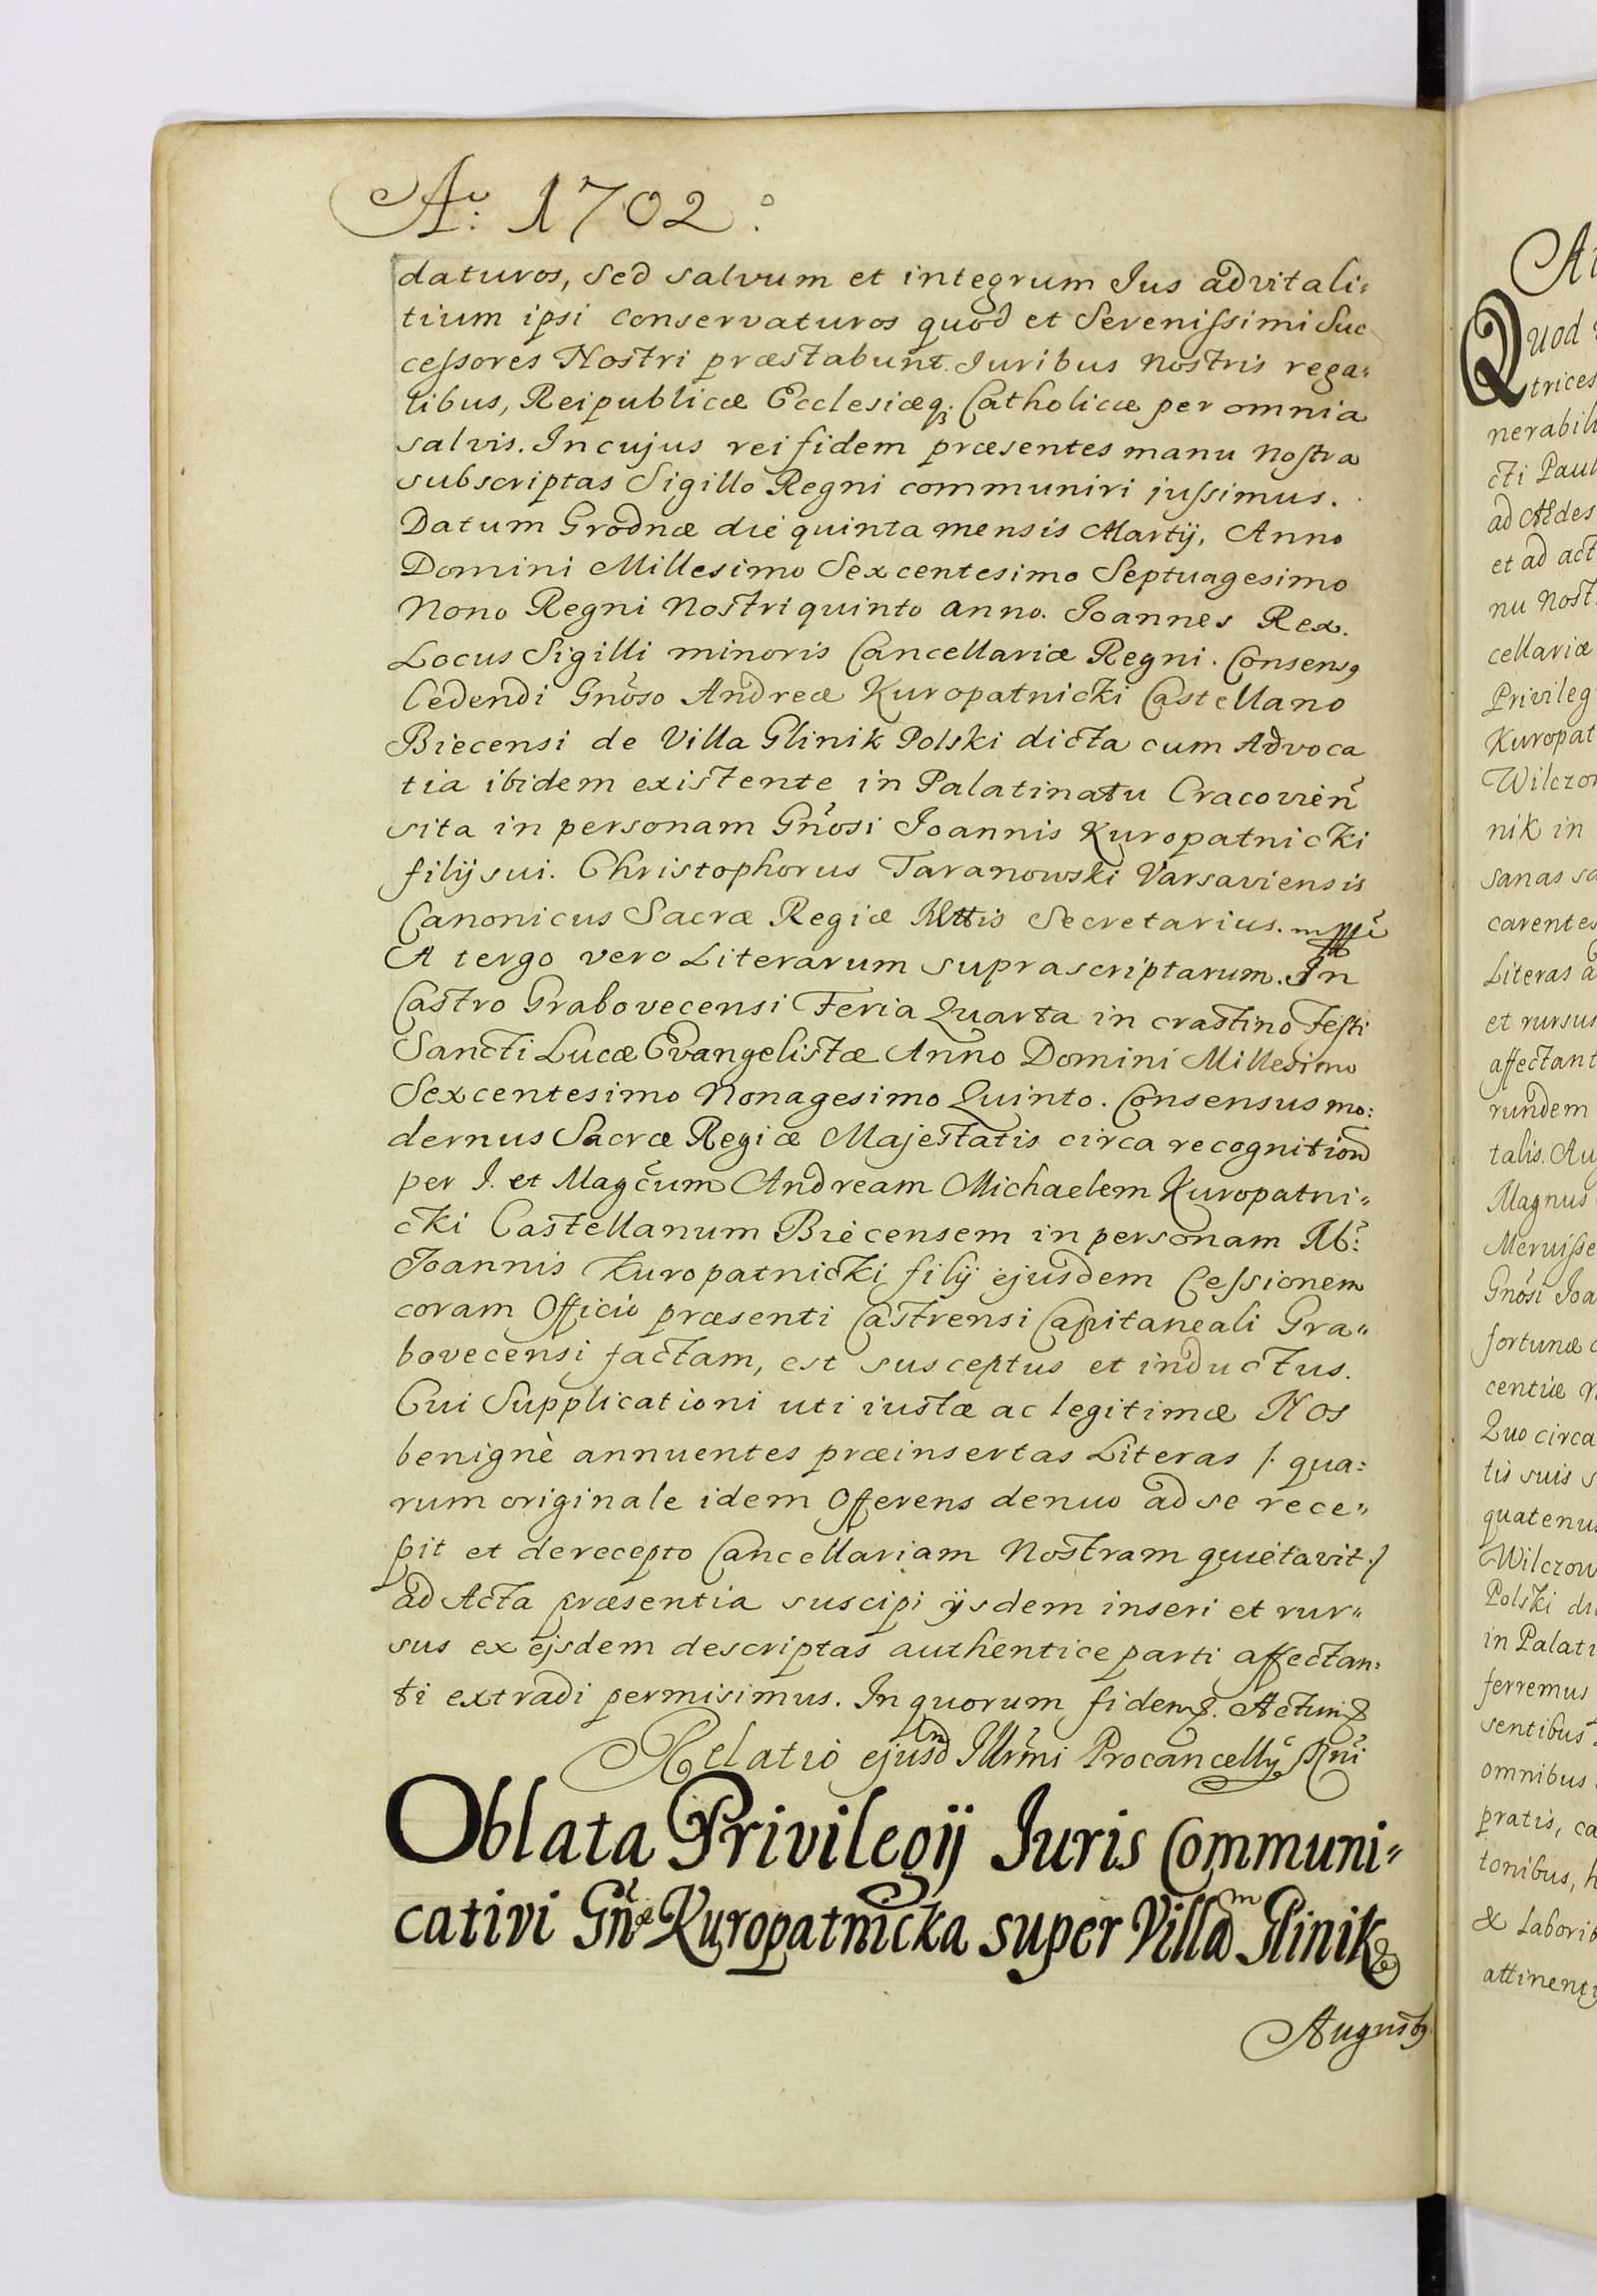 Aº: 1702:
daturos, sed salvum et integrum Ius advitali:
tium ipsi conservaturos quod et Serenissimi Suc
cessores Nostri præstabunt. Iuribus nostris rega:
libus, Reipublicæ Ecclesiæq; Catholicæ per omnia
salvis. In cujus rei fidem præsentes manu nostra
subscriptas Sigillo Regni communiri jussimus.
Datum Grodnæ die quinta mensis Martij, Anno
Domini Millesimo Sexcentesimo Septuagesimo
Nono Regni Nostri quinto anno. Joannes Rex.
Locus Sigilli minoris Cancellariæ Regni. Consensꝯ
Cedendi Gnoso Andreæ Kuropatnicki Castellano
Biecensi de Villa Glinik Polski dicta cum Advoca
tia ibidem existente in Palatinatu Cracovien
sita in personam Gnosi Joannis Kuropatnicki
filij sui. Christophorus Taranowski Varsaviensis
Canonicus Sacræ Regiæ Mttis Secretarius. mpp
A tergo vero Literarum suprascriptarum. In
Castro Grabovecensi Feria Quarta in crastino Festi
Sancti Lucæ Evangelistæ Anno Domini Millesimo
Sexcentesimo Nonagesimo Quinto. Consensus mo:
dernus Sacræ Regiæ Majestatis circa recognition
per J. et Magcum Andream Michaelem Kuropatni:
cki Castellanum Biecensem in personam M:
Joannis Kuropatnicki filij ejusdem Cessionem
coram Officio præsenti Castrensi Capitaneali Gra:
bovecensi factam, est susceptus et inductus.
Cui Supplicationi uti iustæ ac legitimæ Nos
benignè annuentes præinsertas Literas /. qua:
rum originale idem Offerens denuo ad se rece:
pit et de recepto Cancellariam Nostram quietavit ./
ad Acta præsentia suscipi ijsdem inseri et rur:
sus ex ejsdem descriptas authentice parti affectan:
ti extradi permisimus. In quorum fidem &. Actum &
Relatio ejusdm Illrmi Procancellỹ Rni
Oblata Privilegij Iuris Communi:
cativi Gnæ Kuropatnicka super Villam Glinik
Augustꝯ
Quod
trices
nerabili
cti Paul
ad Ædes
et ad act
nu Nost
cellariæ
Privileg
Kuropat
Wilczo
nik in
sanas sa
carentes
Literas a
et rursus
affectant
rundem
talis. Au
Magnus
Meruisse
Gnosi Joa
fortunæ
centiæ
Quo circa
tis suis s
quatenus
Wilczow
Polski di
in Palati
ferremus
sentibus
omnibus
pratis, ca
tonibus, h
& Laborib
attinenti